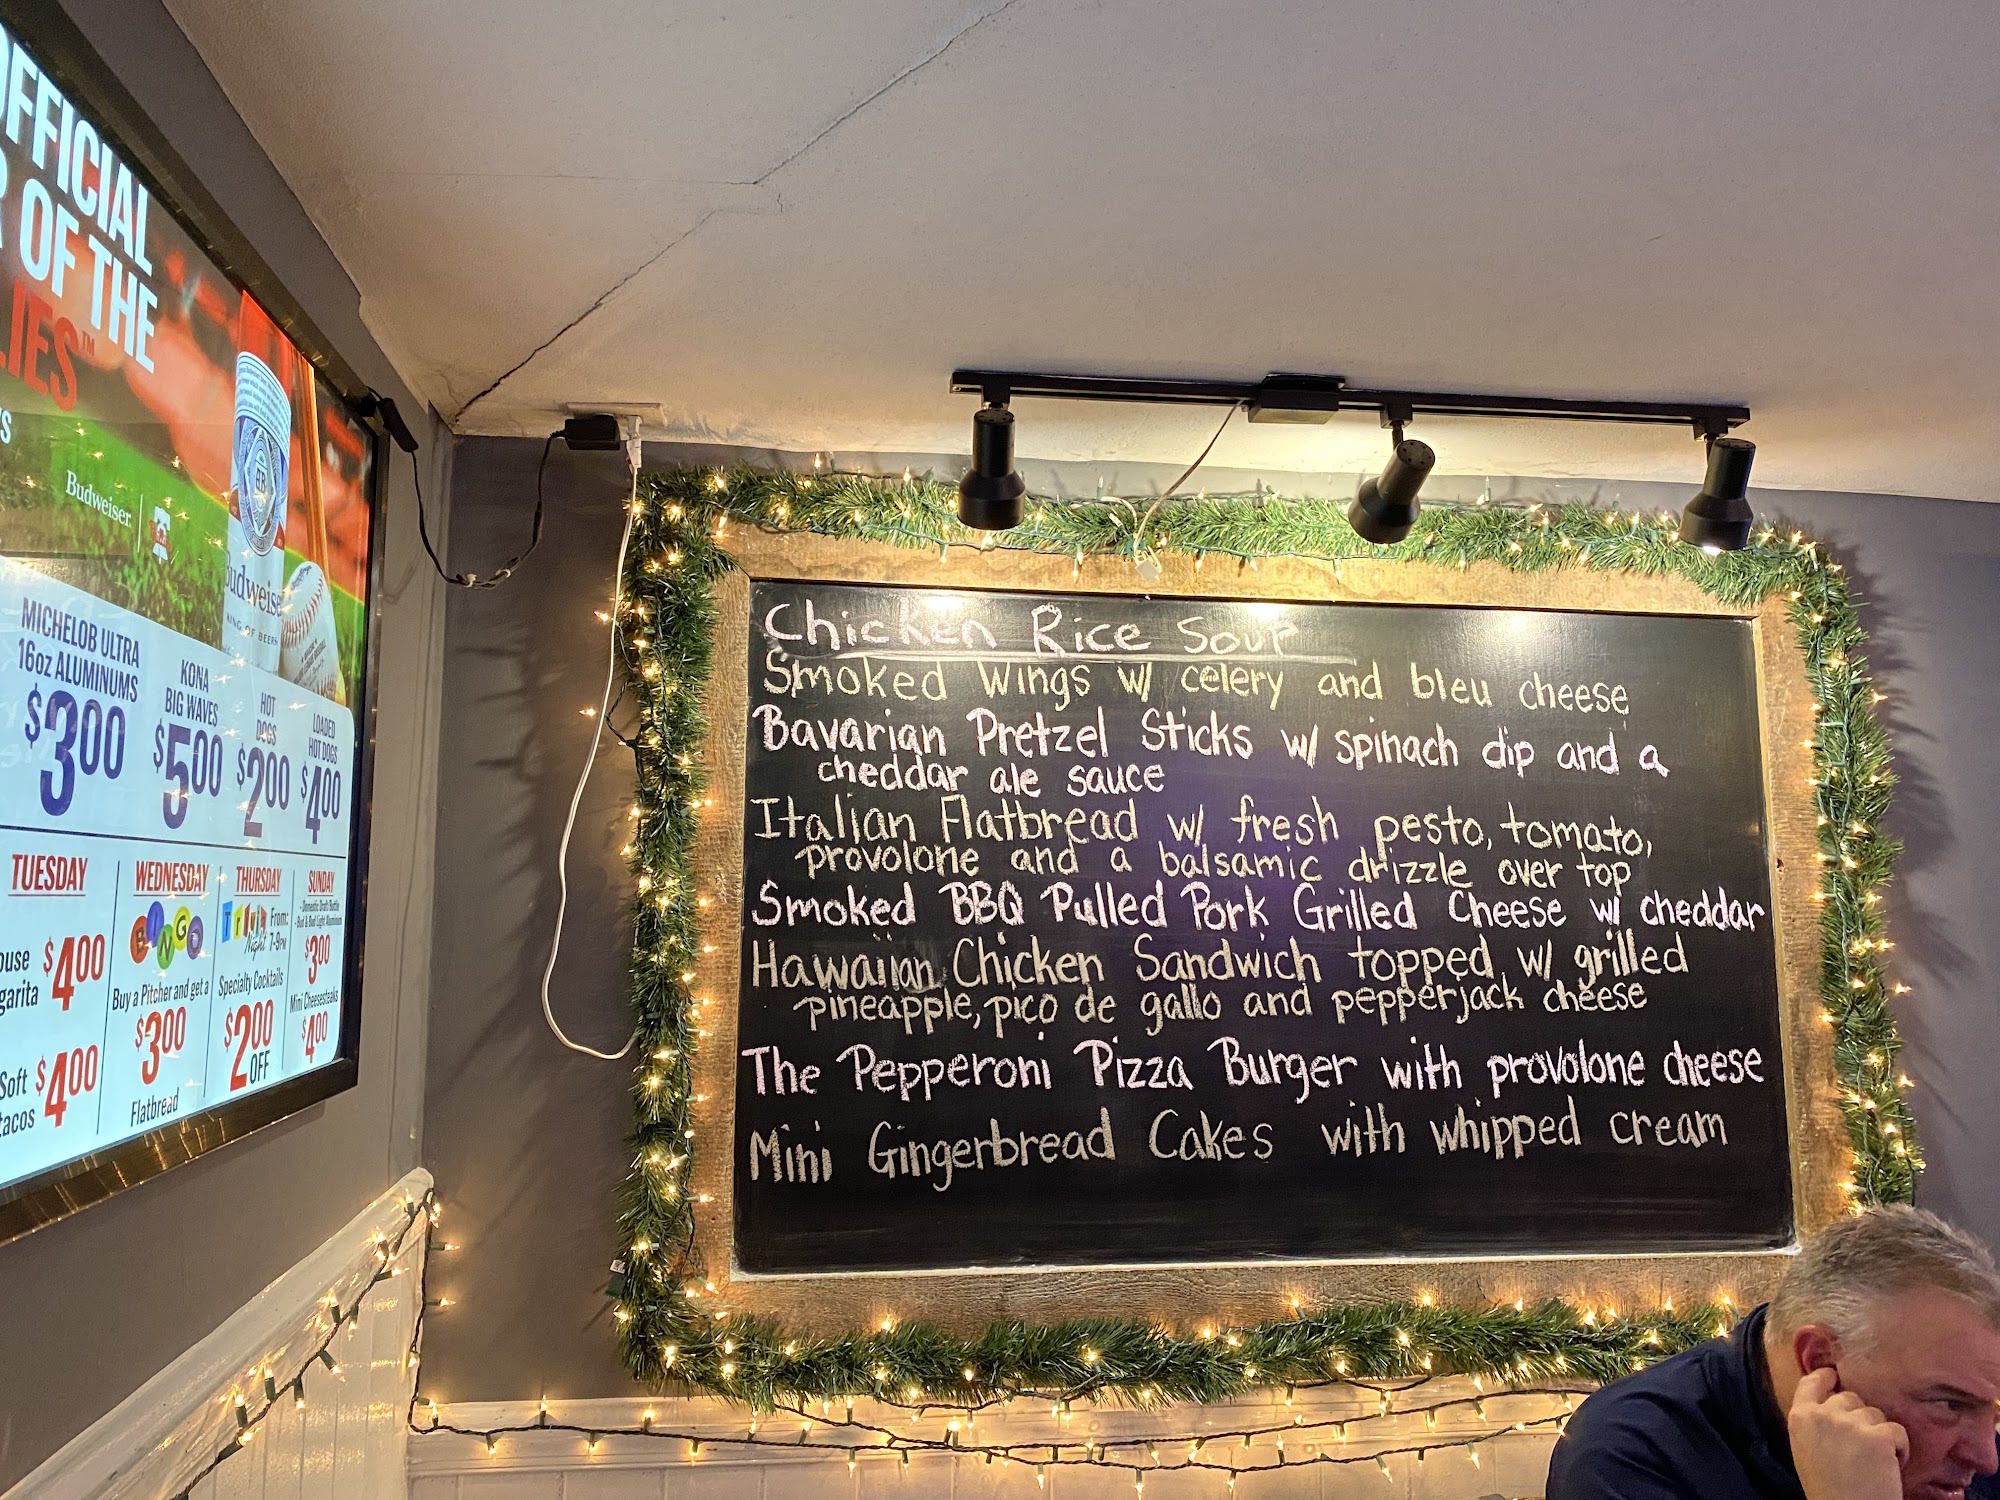 OFFICIAL
OF THE
LIES™
Budweiser
Budweiser
KING OF BEERS
MICHELOB ULTRA
16oz ALUMINUMS
$3.00
KONA
BIG WAVES
$5.00
HOT
DOGS
$2.00
LOADED
HOT DOGS
$4.00
TUESDAY
$4.00
Soft
tacos $4.00
WEDNESDAY
BINGO
Buy a Pitcher and get a
$3.00
Flatbread
THURSDAY
Trivia
Night
From:
7-9PM
Specialty Cocktails
$2.00
OFF
SUNDAY
- Domestic Draft Bottle
- Bud & Bud Light Aluminum
$3.00
Mini Cheesesteaks
$4.00
Chicken Rice Soup
Smoked Wings w/ celery and bleu cheese
Bavarian Pretzel Sticks w/ spinach dip and a
cheddar ale sauce
Italian Flatbread w/ fresh pesto, tomato,
provolone and a balsamic drizzle over top
Smoked BBQ Pulled Pork Grilled Cheese w/ cheddar
Hawaiian Chicken Sandwich topped w/ grilled
pineapple, pico de gallo and pepperjack cheese
The Pepperoni Pizza Burger with provolone cheese
Mini Gingerbread Cakes with whipped cream